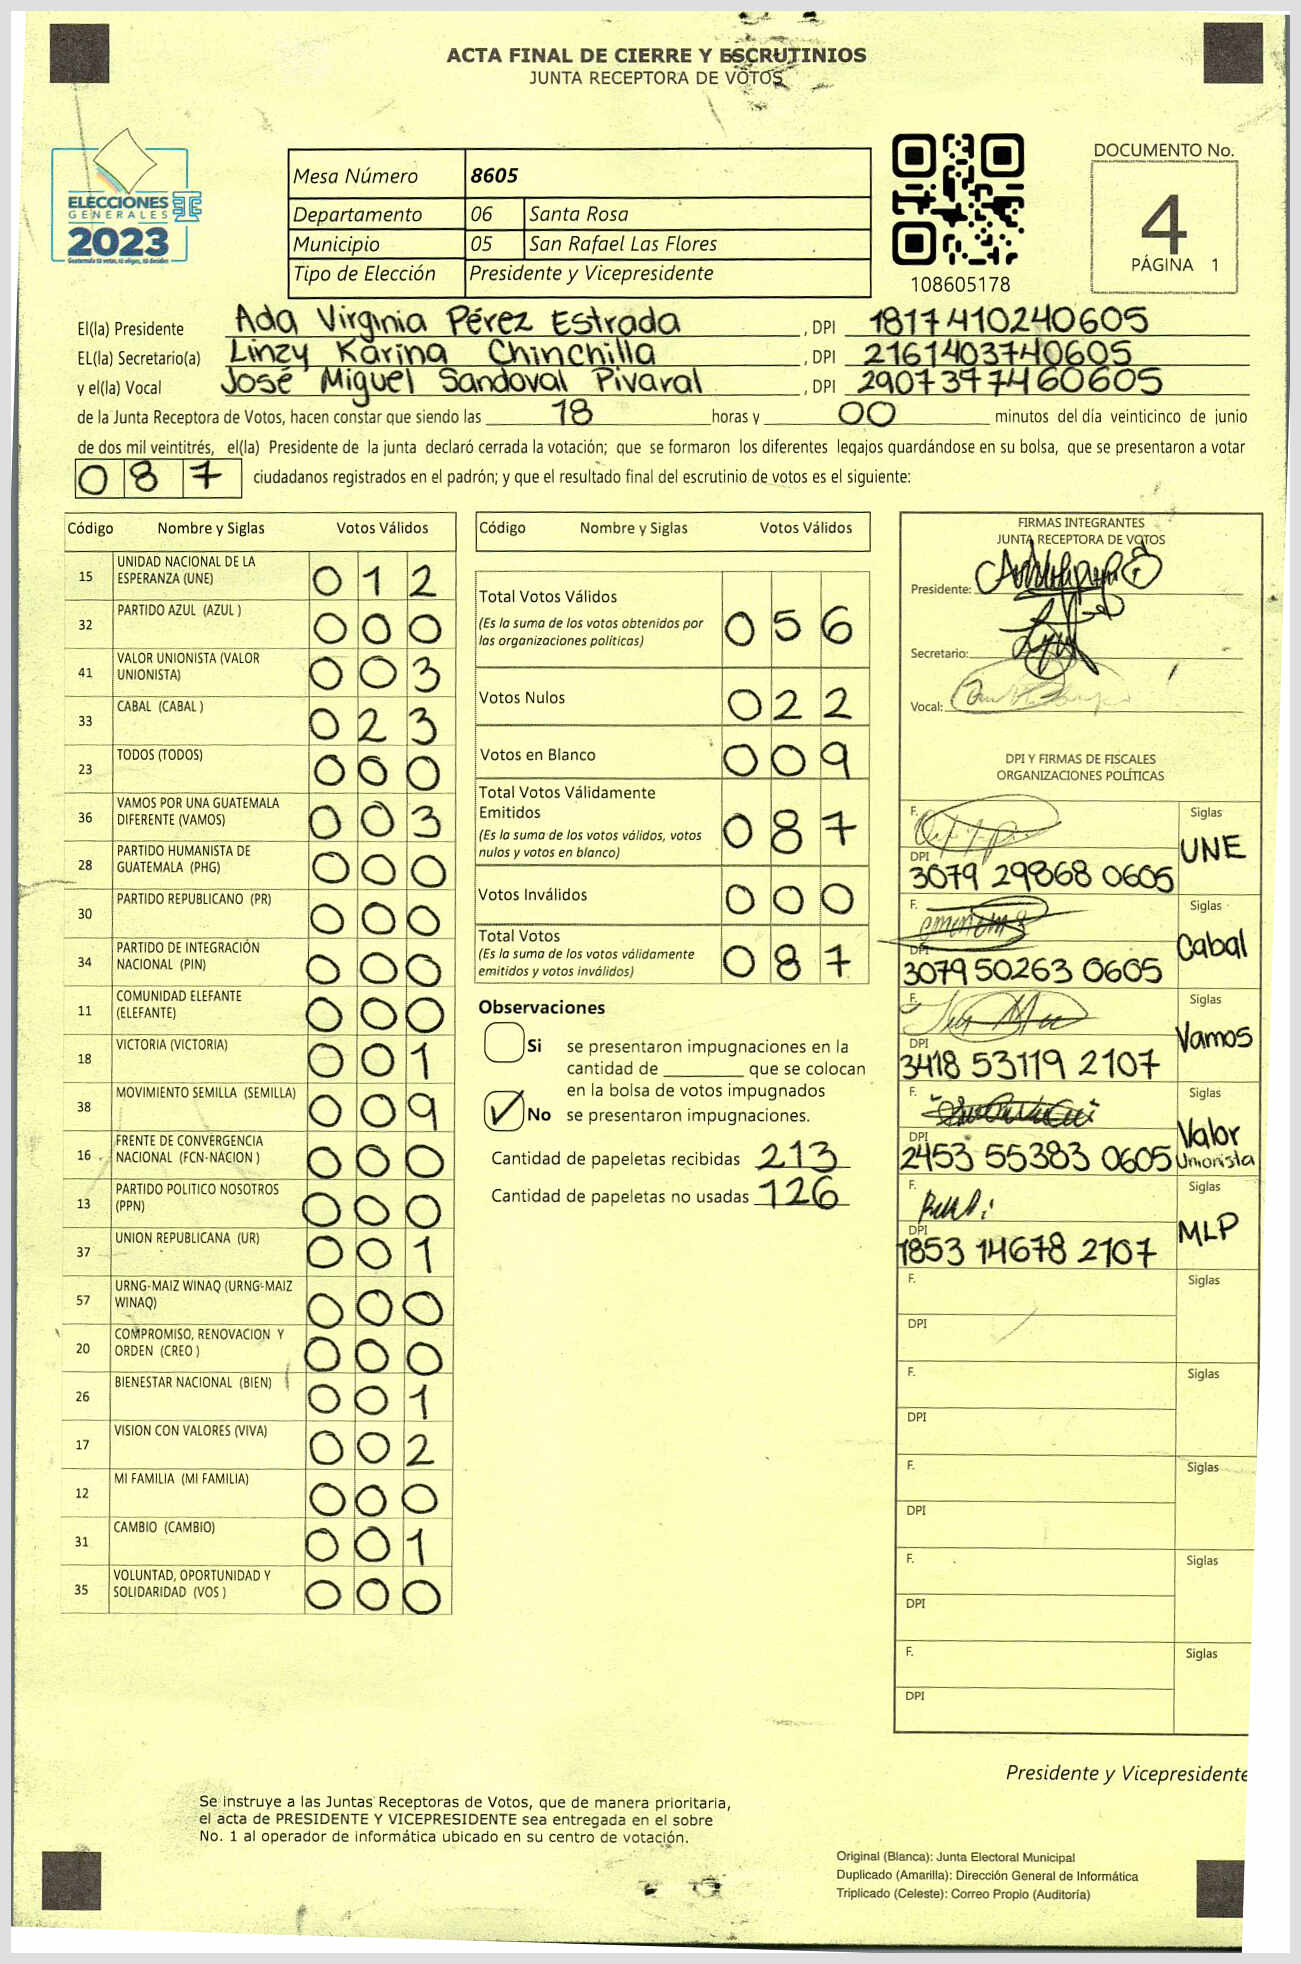 ACTA FINAL DE CIERRE Y ESCRUTINIOS
JUNTA RECEPTORA DE VOTOS
ELECCIONES
GENERALES
2023
Mesa Número 8605
Departamento 06 Santa Rosa
Municipio 05 San Rafael Las Flores
Tipo de Elección Presidente y Vicepresidente
108605178
DOCUMENTO No.
4
PÁGINA 1
El(la) Presidente Ada Virginia Pérez Estrada , DPI 1817410240605
EL(la) Secretario(a) Linzy Karina Chinchilla , DPI 2161403740605
y el(la) Vocal José Miguel Sandoval Pivaral , DPI 2907377460605
de la Junta Receptora de Votos, hacen constar que siendo las 18 horas y 00 minutos del día veinticinco de junio
de dos mil veintitrés, el(la) Presidente de la junta declaró cerrada la votación; que se formaron los diferentes legajos guardándose en su bolsa, que se presentaron a votar
087 ciudadanos registrados en el padrón; y que el resultado final del escrutinio de votos es el siguiente:
Código Nombre y Siglas Votos Válidos
15 UNIDAD NACIONAL DE LA
ESPERANZA (UNE) 012
32 PARTIDO AZUL (AZUL ) 000
41 VALOR UNIONISTA (VALOR
UNIONISTA) 003
33 CABAL (CABAL ) 023
23 TODOS (TODOS) 000
36 VAMOS POR UNA GUATEMALA
DIFERENTE (VAMOS) 003
28 PARTIDO HUMANISTA DE
GUATEMALA (PHG) 000
30 PARTIDO REPUBLICANO (PR) 000
34 PARTIDO DE INTEGRACIÓN
NACIONAL (PIN) 000
11 COMUNIDAD ELEFANTE
(ELEFANTE) 000
18 VICTORIA (VICTORIA) 001
38 MOVIMIENTO SEMILLA (SEMILLA) 009
16 FRENTE DE CONVERGENCIA
NACIONAL (FCN-NACION ) 000
13 PARTIDO POLITICO NOSOTROS
(PPN) 000
37 UNION REPUBLICANA (UR) 001
57 URNG-MAIZ WINAQ (URNG-MAIZ
WINAQ) 000
20 COMPROMISO, RENOVACION Y
ORDEN (CREO ) 000
26 BIENESTAR NACIONAL (BIEN) 001
17 VISION CON VALORES (VIVA) 002
12 MI FAMILIA (MI FAMILIA) 000
31 CAMBIO (CAMBIO) 001
35 VOLUNTAD, OPORTUNIDAD Y
SOLIDARIDAD (VOS ) 000
Código Nombre y Siglas Votos Válidos
Total Votos Válidos 056
(Es la suma de los votos obtenidos por
las organizaciones políticas)
Votos Nulos 022
Votos en Blanco 009
Total Votos Válidamente
Emitidos 087
(Es la suma de los votos válidos, votos
nulos y votos en blanco)
Votos Inválidos 000
Total Votos 087
(Es la suma de los votos válidamente
emitidos y votos inválidos)
Observaciones
Si se presentaron impugnaciones en la
cantidad de ________ que se colocan
en la bolsa de votos impugnados
No se presentaron impugnaciones.
Cantidad de papeletas recibidas 213
Cantidad de papeletas no usadas 126
FIRMAS INTEGRANTES
JUNTA RECEPTORA DE VOTOS
Presidente:
Secretario:
Vocal:
DPI Y FIRMAS DE FISCALES
ORGANIZACIONES POLÍTICAS
F. Siglas
UNE
DPI
3079 29868 0605
F. Siglas
Cabal
DPI
3079 50263 0605
F. Siglas
Vamos
DPI
3418 53119 2107
F. Siglas
Valor
Unionista
DPI
2453 55383 0605
F. Siglas
MLP
DPI
1853 14678 2107
F. Siglas
DPI
F. Siglas
DPI
F. Siglas
DPI
F. Siglas
DPI
F. Siglas
DPI
Presidente y Vicepresidente
Se instruye a las Juntas Receptoras de Votos, que de manera prioritaria,
el acta de PRESIDENTE Y VICEPRESIDENTE sea entregada en el sobre
No. 1 al operador de informática ubicado en su centro de votación.
Original (Blanca): Junta Electoral Municipal
Duplicado (Amarilla): Dirección General de Informática
Triplicado (Celeste): Correo Propio (Auditoría)